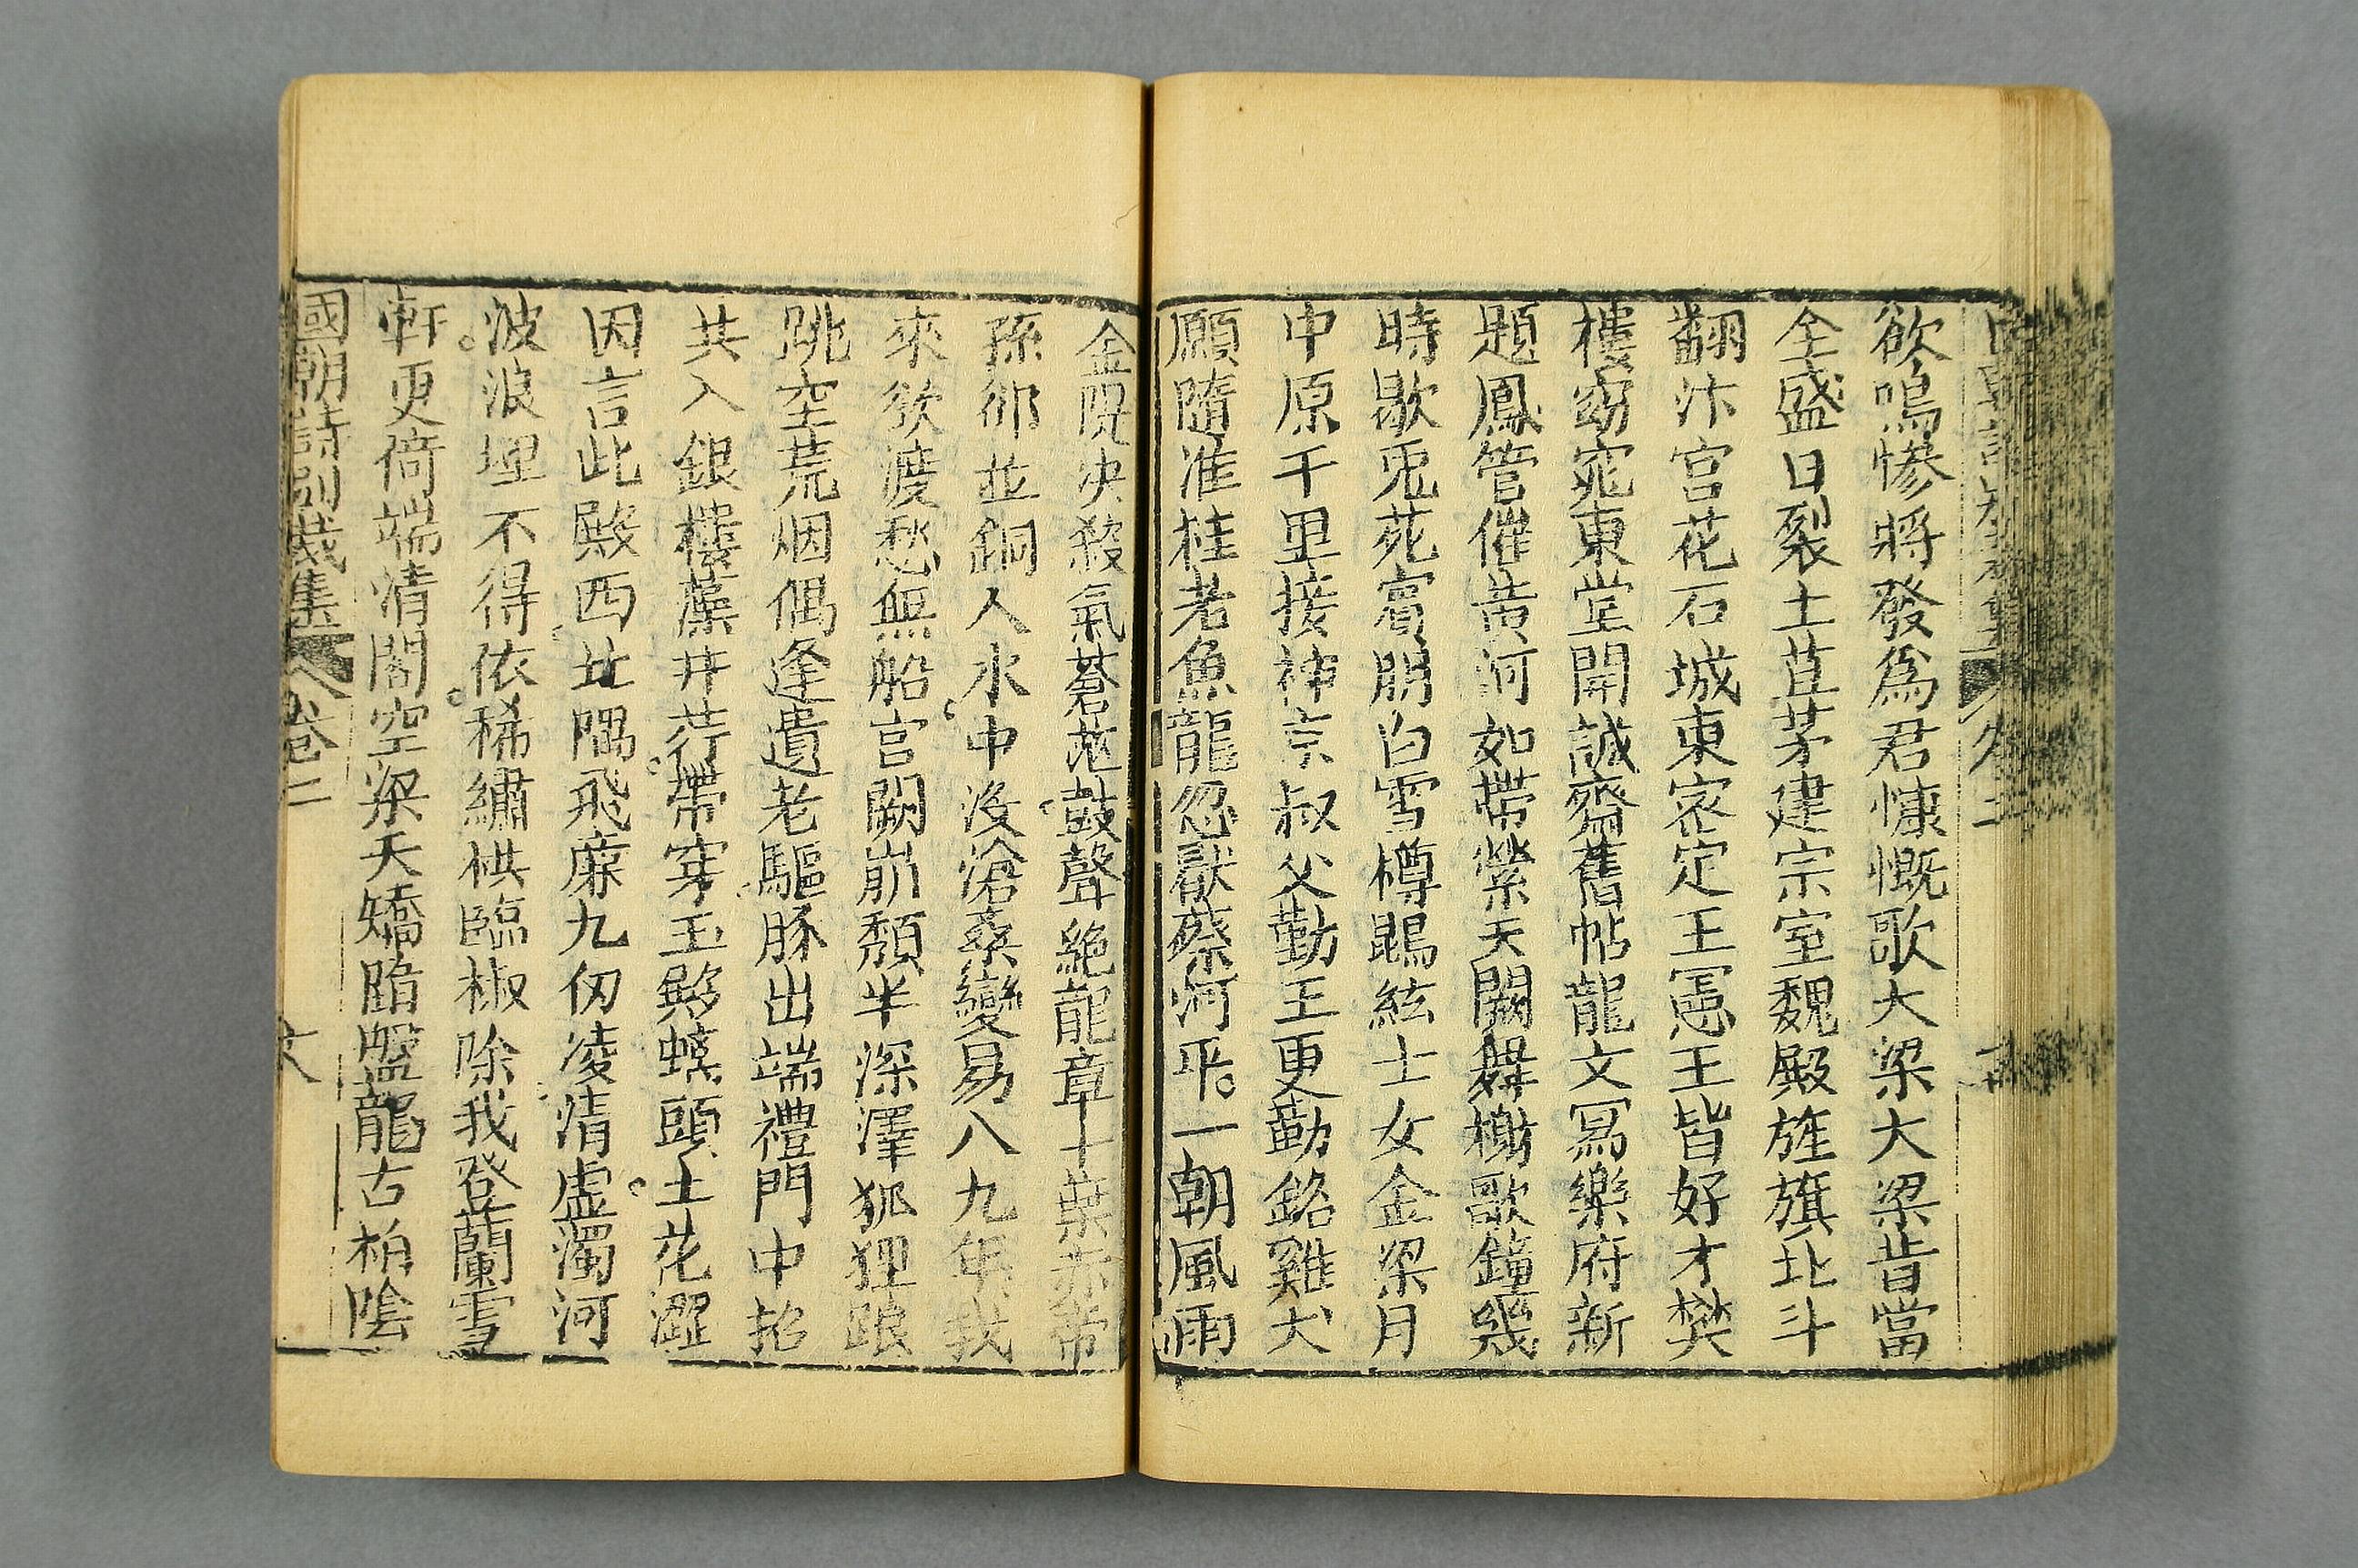 欲鳴慘將發爲君慷慨歌大梁大梁昔當
全盛日裂土苴茅建宗室魏殿旌旗北斗
翻汴宮花石城東密定王憲王皆好才樊
樓窈窕東堂開誠齋舊帖龍文冩樂府新
題鳳管催黄河如帶縈天闕舞榭歌鐘幾
時歇兎苑賓朋白雪樽鵾絃士女金梁月
中原千里接神京叔父勤王更勒銘雞犬
願隨淮桂老魚龍忽厭蔡河平一朝風雨
金隄決殺氣蒼茫鼓聲絶龍章十葉赤帝
孫卻並銅人水中没滄桑變易八九年我
來欲渡愁無船宫闕崩頽半深澤狐狸踉
跳空荒烟偶逢遺老驅豚出端禮門中招
共入銀樓藻井荇帶穿玉殿螭頭土花澀
因言此殿西北隅飛廉九仭凌清虚濁河
波浪埋不得依稀繡栱臨椒除我登蘭雪
軒更倚端清閣空梁夭矯臨盤龍古柏陰
國朝詩别裁集
卷二